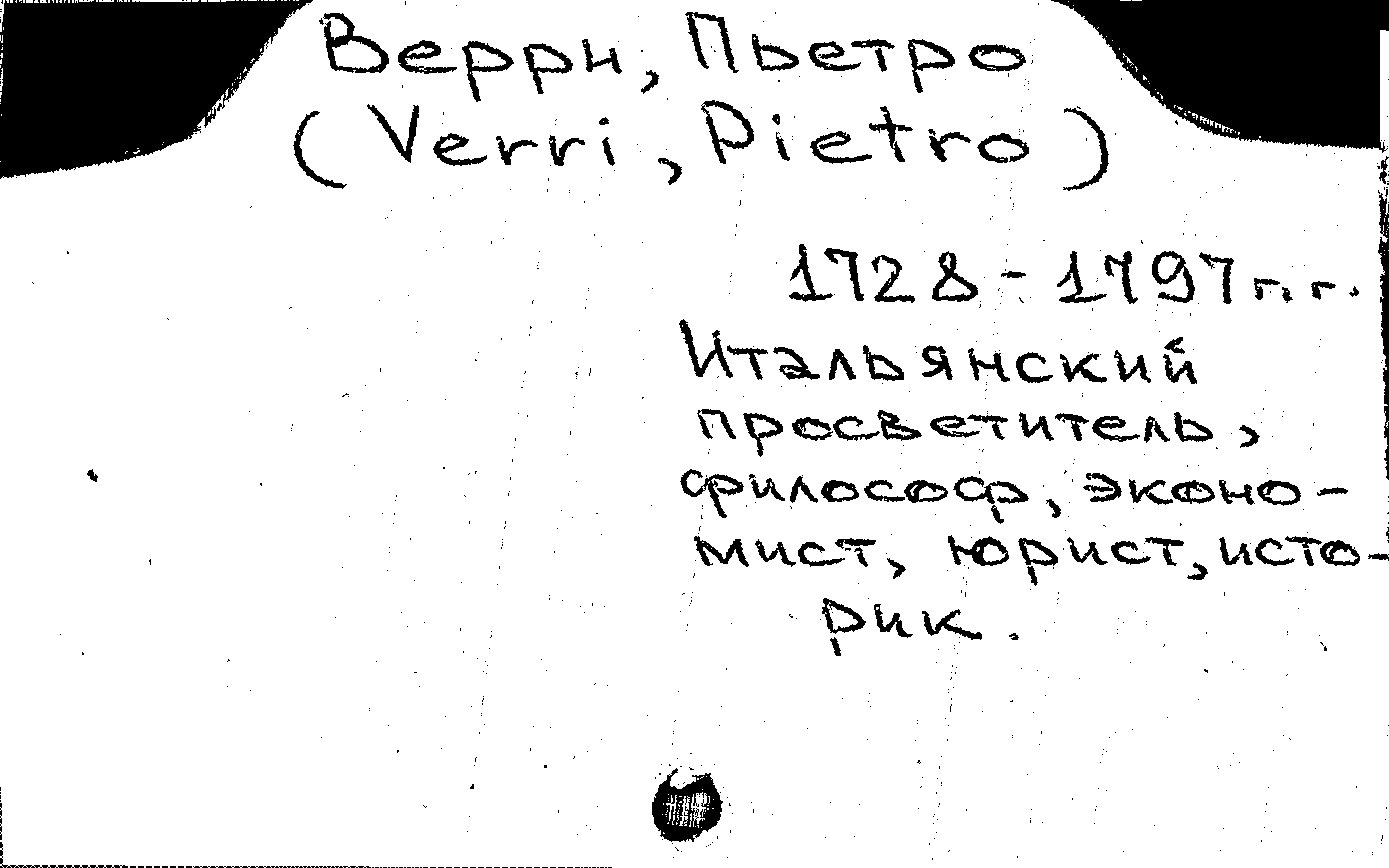 Верри, Пьетро
(Verri, Pietro)
1728-1797 г.г.
Итальянский
просветитель,
философ, эконо-
мист, юрист, исто-
рик.